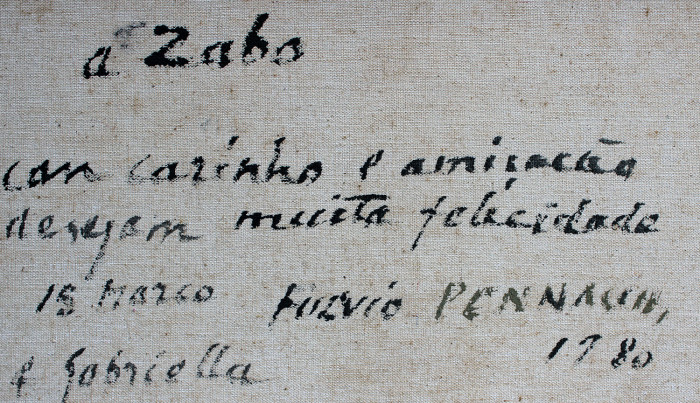 a Zabo
con carinho e amiração
desejam muita felicidade
15 Março Fulvio PENNACCHI,
1980
e Gabriella